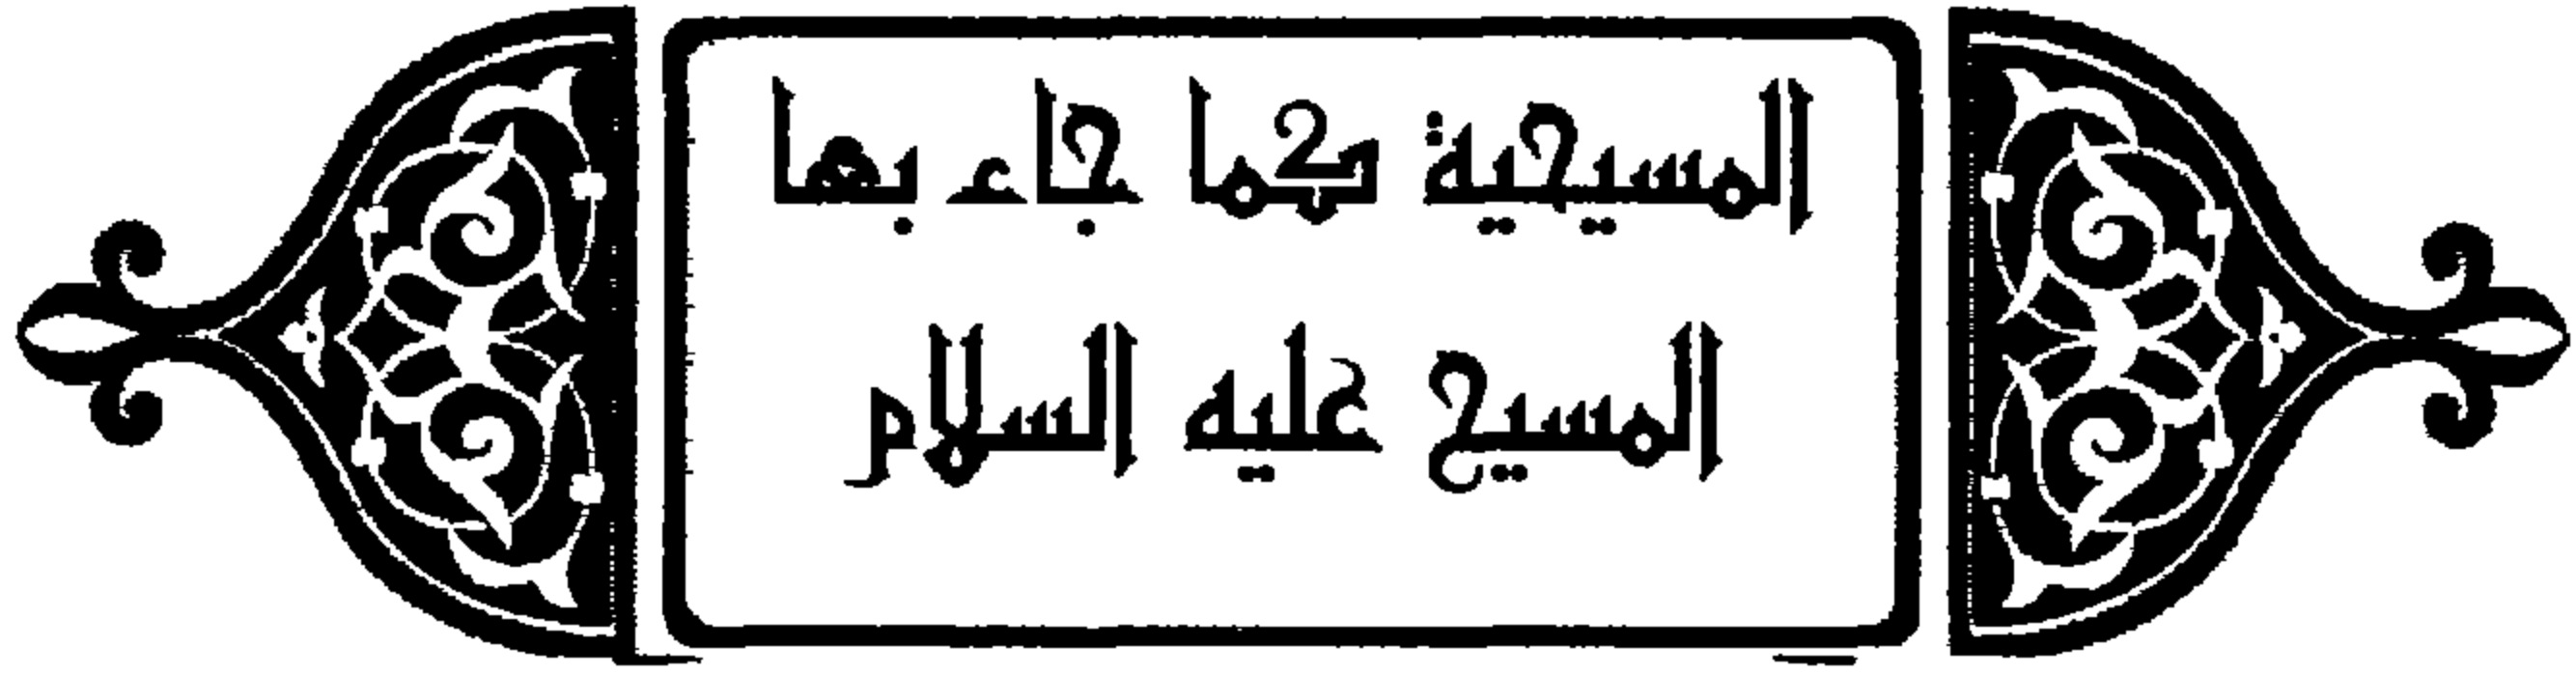 المسيحية كما جاء بها
المسيح عليه السلام